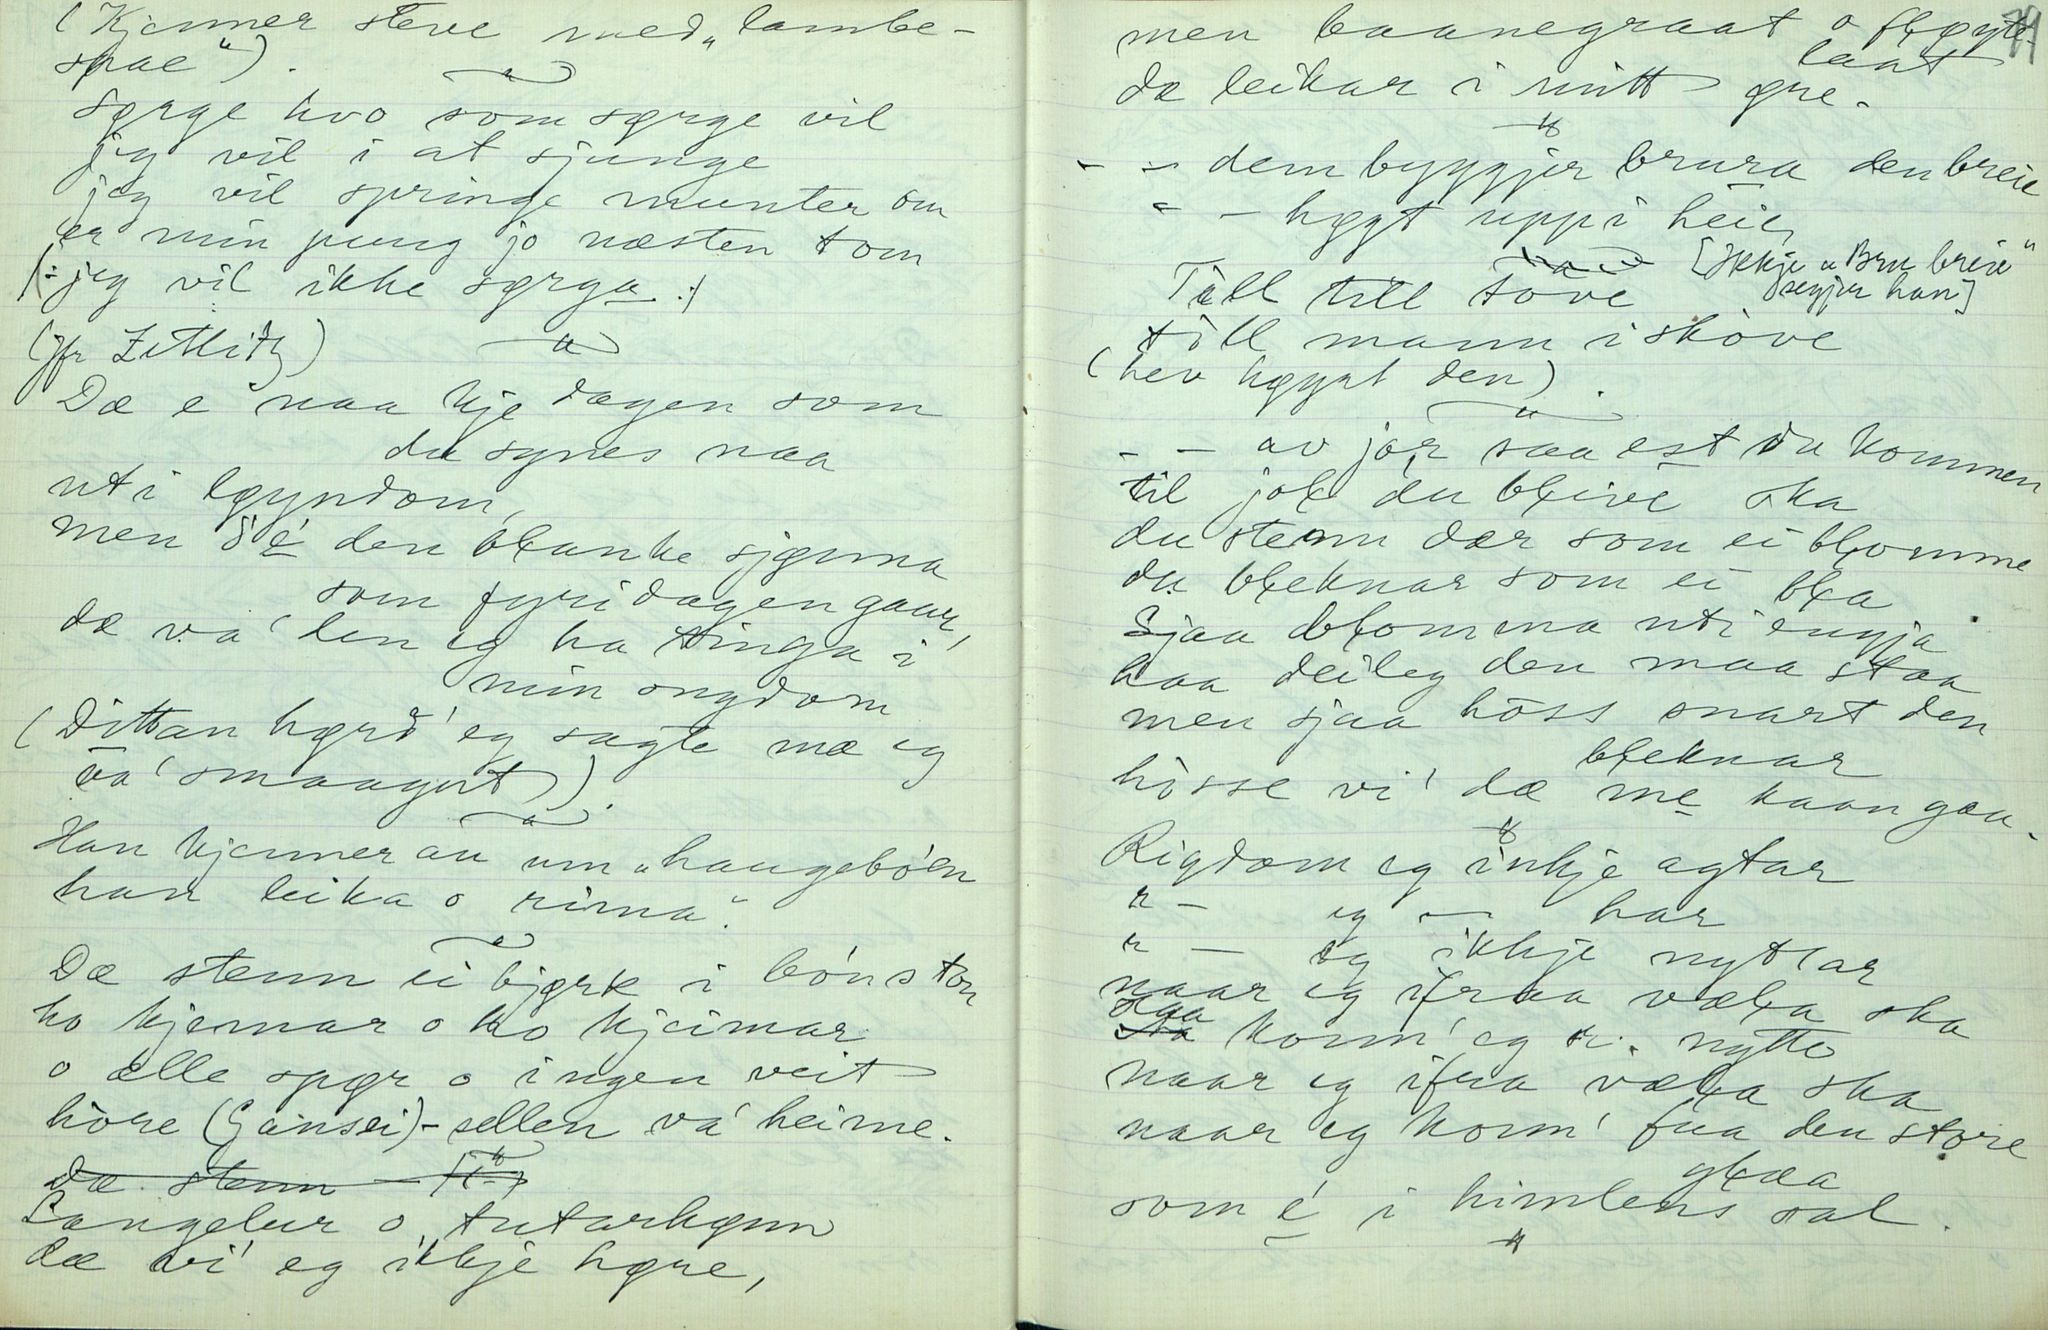 (Kjenner steve med „lambe-
spae").
sørge hvo som sørge vil
jeg vil i at sjunge
jeg vil springe munter om
er min pung jo næsten tom
/: jeg vil ikke sørga :/
(Jfr Zetlitz)
Dæ e' naa kje dagen som
du synes naa
ut i løyndom,
men d'é den blanke sjønna
som fyri dagen gaar,
dæ va' den eg ha tinga i
min ongdom
(Dittan hørd' eg sagte mæ eg
va' smaagut).
Han kjenner au um „haugebóen
han leika o rima".
Dæ stenn ei bjørk i bónston
ho kjemar o ho kjeimar
o alle spør o ingen veit
hóre (Gánsei) - sellen va' heime.
Dæ stenn
Langelur o tutarhønn
dæ vi' eg ikkje høre,
79
men baanegraat o fløyte-
laat
dæ leikar i mitt øre.
- - dem byggjer brura den breie
- - høgt uppi heie
[Ikkje „Bru breie"
segjer han]
Till till tove
till mann i skóve
(hev høyrt den).
- - av jór saa est du kommen
til jol du bleive ska
du stenn dær som ei blomme
du bleknar som ei bla
Sjaa blomma uti engja
haa deileg den maa staa
men sjaa hóss snart den
bleknar
hósse vi' dæ me kaan gaa.
Rigdom eg inkje agtar
" - eg - har
" - eg ikkje nyttar
naar eg ifraa væla ska
slaa
naar eg ifra væla ska
naar eg komm' fraa den store
glæa
som é i himlens sal.